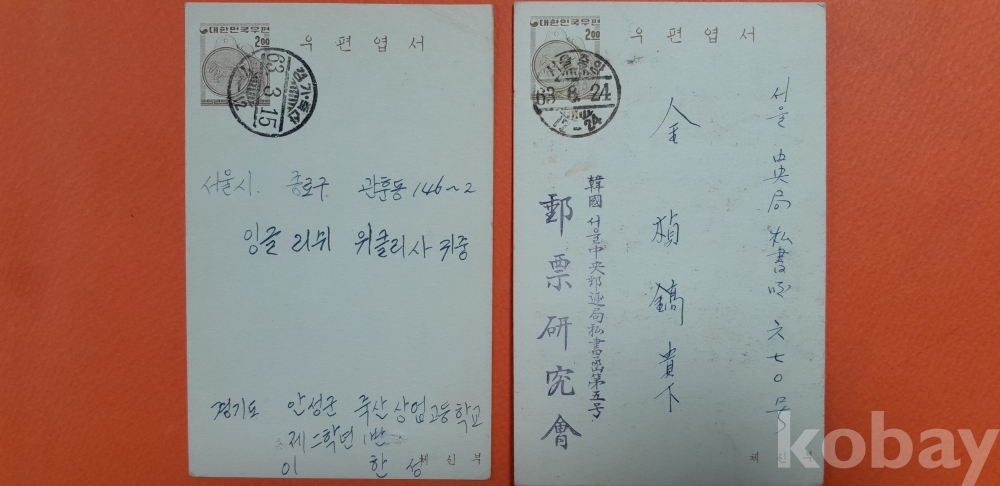 대한민국우편
2.00
우편엽서
63.3.15
서울시. 종로구 관훈동 146~2
잉글리쉬 위클리사 귀중
경기도 안성군 죽산상업고등학교
제二학년 1반
이 한성
체신부
대한민국우편
2.00
우편엽서
서울중앙
63.8.24
서울 中央局 私書函 六七〇号
金 楨鎬 貴下
韓國 서울中央郵遞局私書函第五号
郵票研究會
체신부
kobay